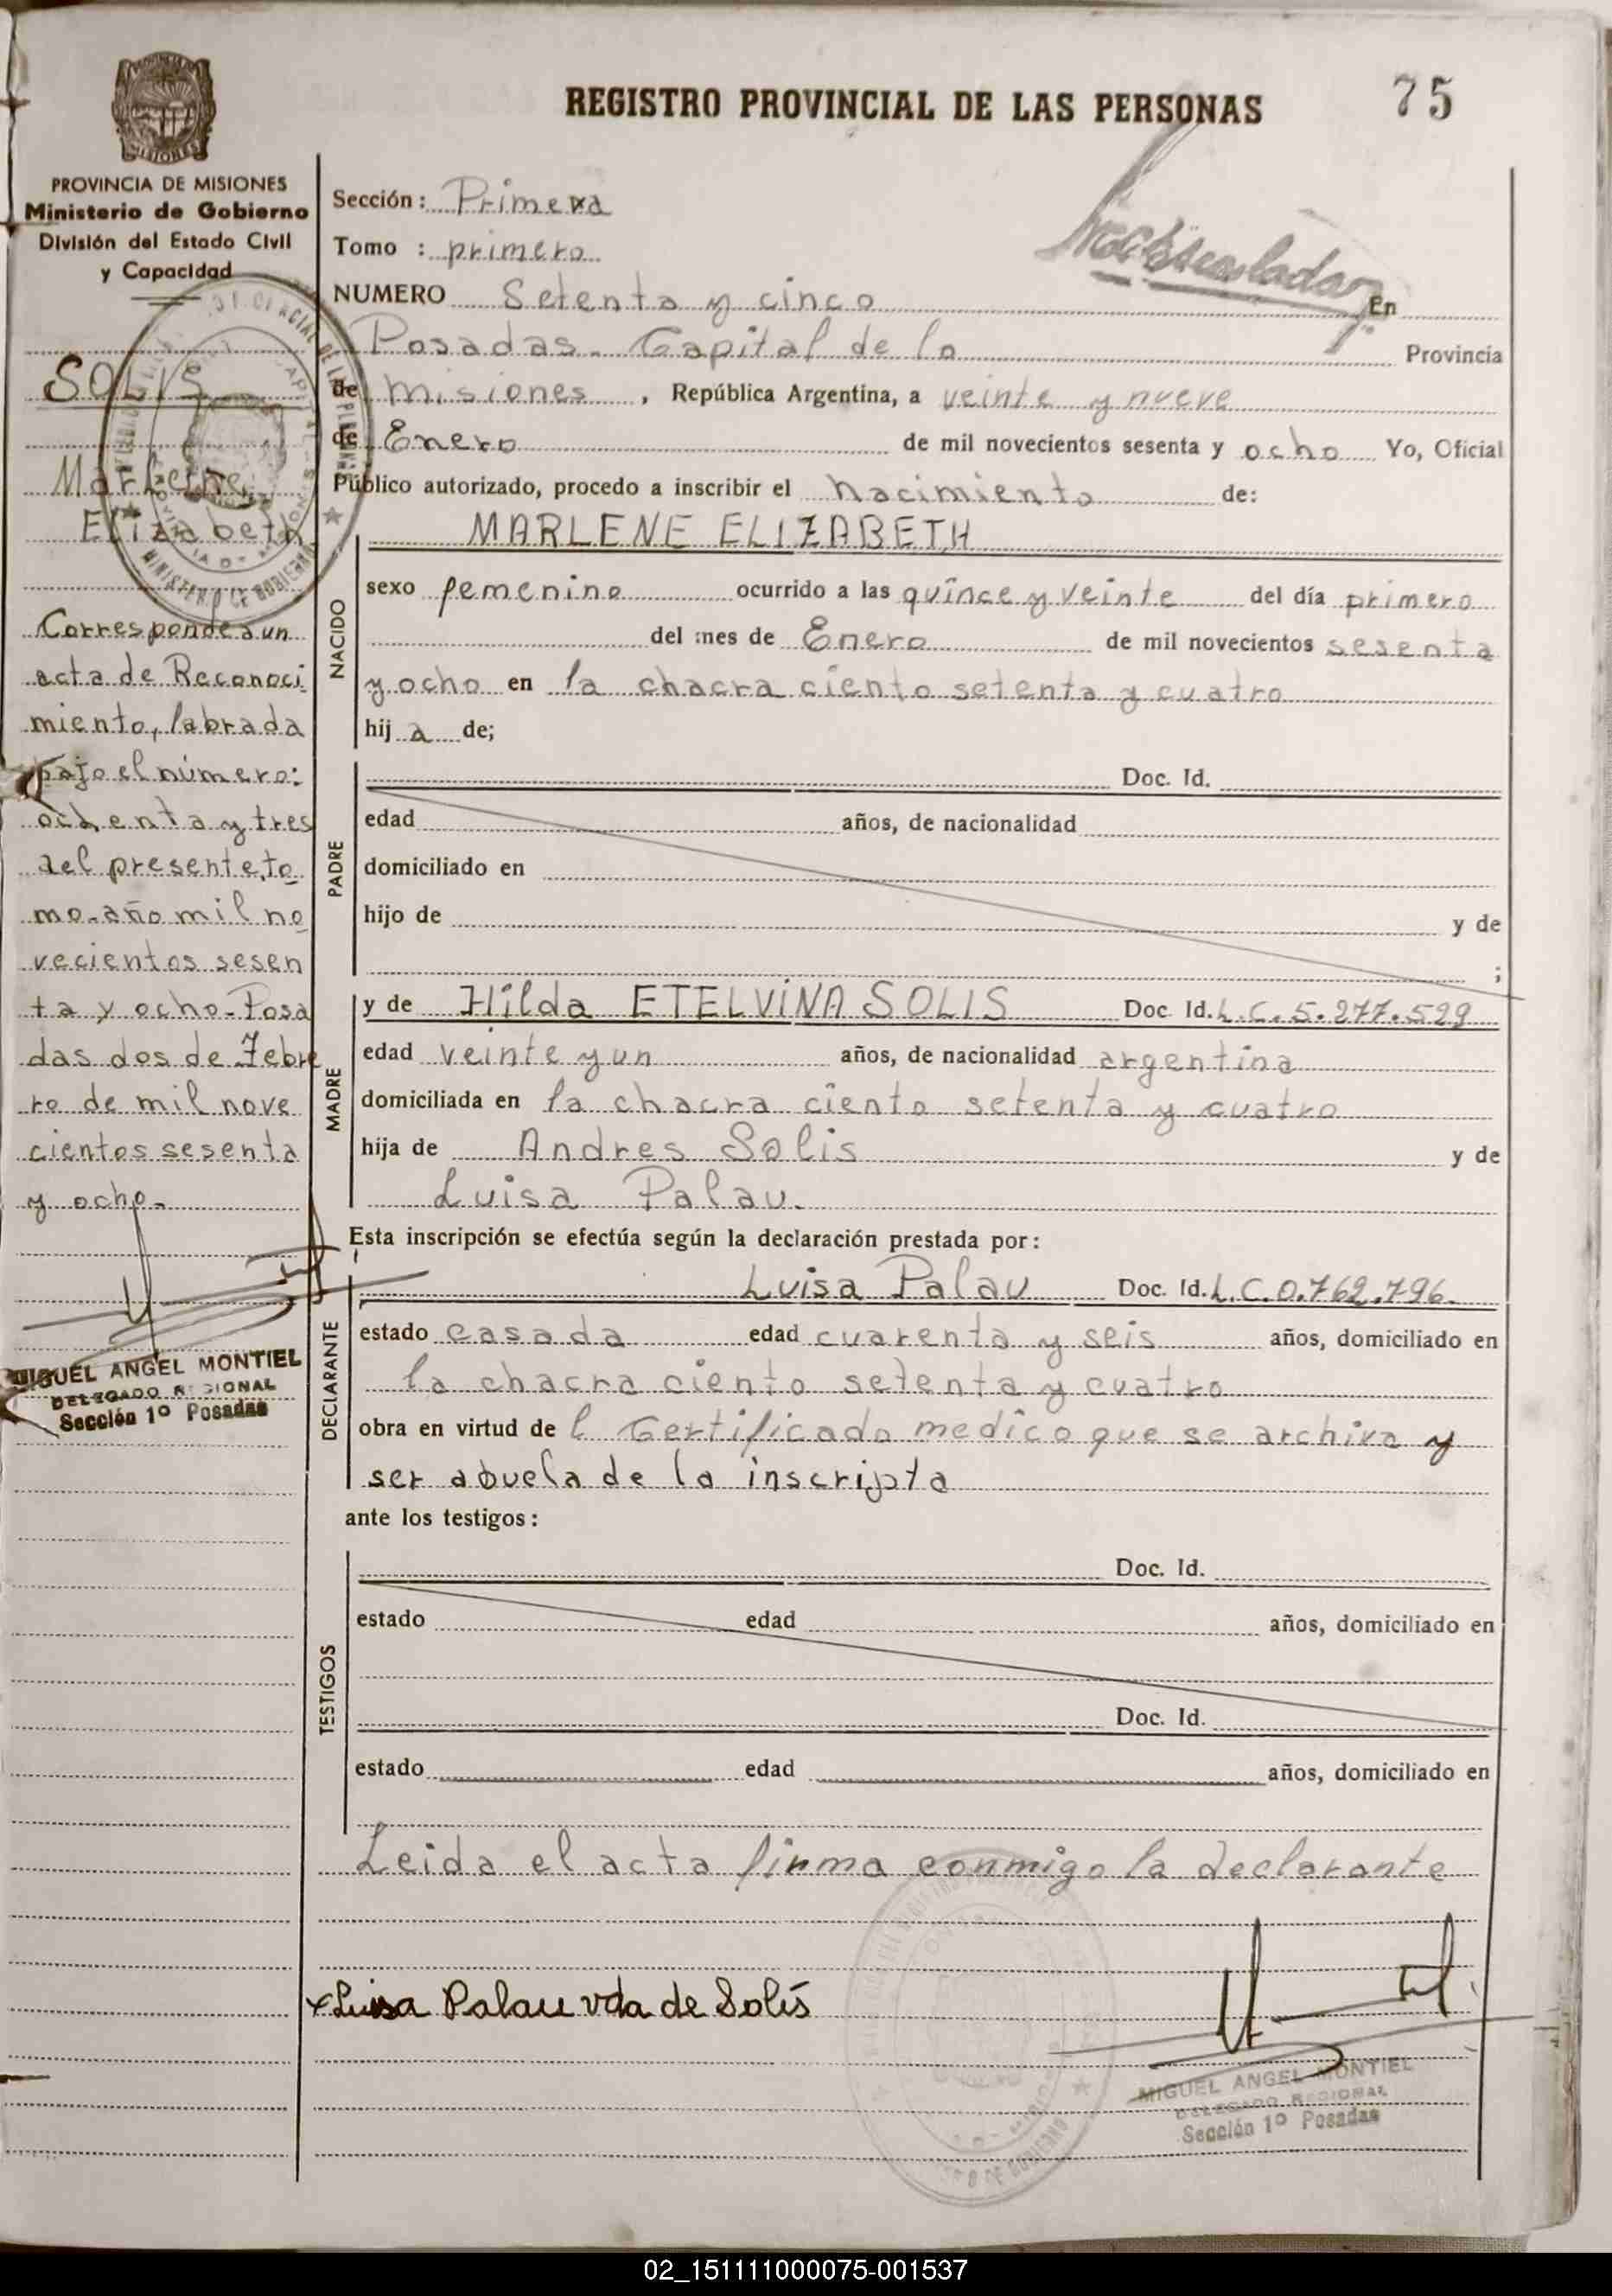 REGISTRO PROVINCIAL DE LAS PERSONAS
75
MISIONES
PROVINCIA DE MISIONES
Ministerio de Gobierno
División del Estado Civil
y Capacidad
SOLIS
Marlene
Elizabeth
Corresponde a un
acta de Reconoci
miento, labrada
bajo el número:
ochenta y tres
del presente to
mo. año mil no
vecientos sesen
ta y ocho - Posa
das dos de Febre
ro de mil nove
cientos sesenta
y ocho.
MIGUEL ANGEL MONTIEL
DELEGADO REGIONAL
Sección 1º Posadas
Sección: Primera
Tomo : primero
NUMERO Setenta y cinco En
Posadas. Capital de la Provincia
de Misiones, República Argentina, a veinte y nueve
de Enero de mil novecientos sesenta y ocho Yo, Oficial
Público autorizado, procedo a inscribir el nacimiento de:
MARLENE ELIZABETH
NACIDO
sexo femenino ocurrido a las quince y veinte del día primero
del mes de Enero de mil novecientos sesenta
y ocho en la chacra ciento setenta y cuatro
hij a de;
PADRE
Doc. Id.
edad años, de nacionalidad
domiciliado en
hijo de y de
;
MADRE
y de Hilda ETELVINA SOLIS Doc. Id. L.C. 5.277.529
edad veinte y un años, de nacionalidad argentina
domiciliada en la chacra ciento setenta y cuatro
hija de Andres Solis y de
Luisa Palau.
Esta inscripción se efectúa según la declaración prestada por:
DECLARANTE
Luisa Palau Doc. Id. L.C. 0.762.796.
estado casada edad cuarenta y seis años, domiciliado en
la chacra ciento setenta y cuatro
obra en virtud de l Certificado medico que se archiva y
ser abuela de la inscripta
ante los testigos:
TESTIGOS
Doc. Id.
estado edad años, domiciliado en
Doc. Id.
estado edad años, domiciliado en
Leida el acta firma conmigo la declarante
x Luisa Palau vda de Solís
MIGUEL ANGEL MONTIEL
DELEGADO REGIONAL
Sección 1º Posadas
02_151111000075-001537